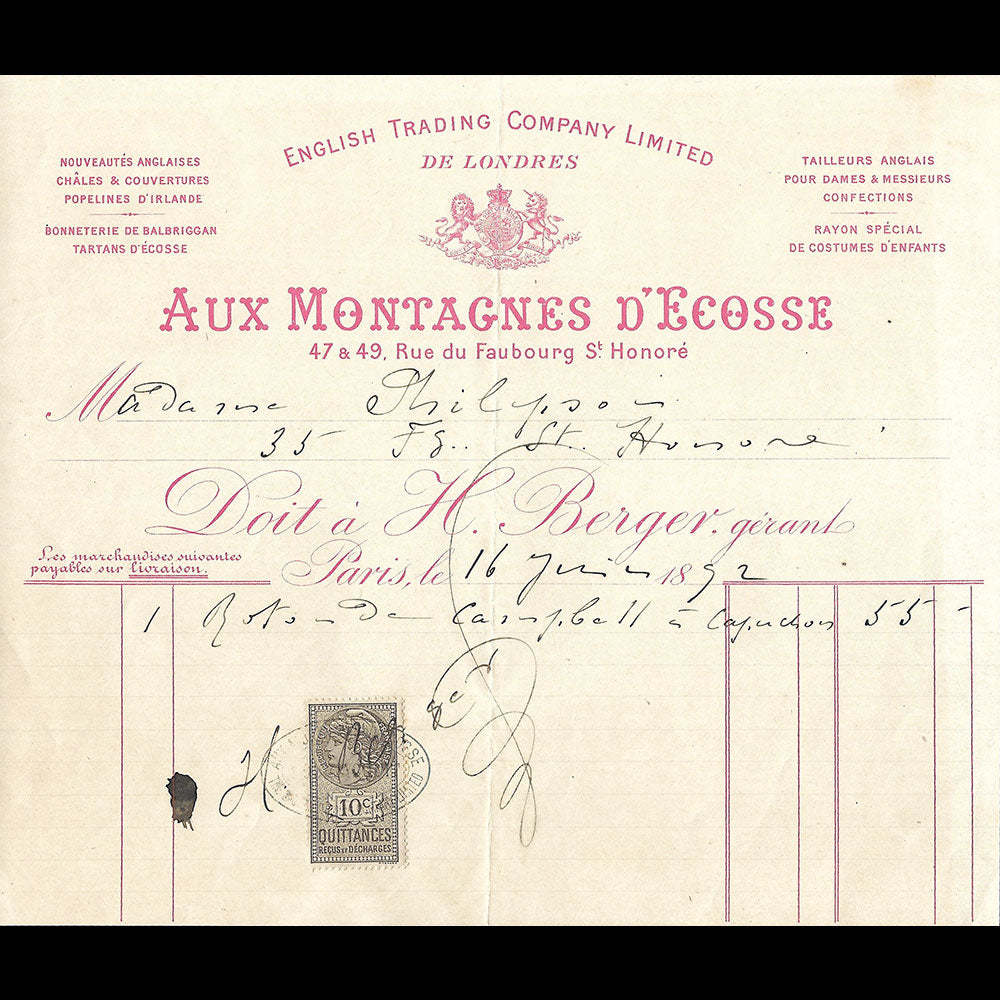 ENGLISH TRADING COMPANY LIMITED
DE LONDRES
NOUVEAUTÉS ANGLAISES
CHÂLES & COUVERTURES
POPELINES D'IRLANDE
BONNETERIE DE BALBRIGGAN
TARTANS D'ÉCOSSE
TAILLEURS ANGLAIS
POUR DAMES & MESSIEURS
CONFECTIONS
RAYON SPÉCIAL
DE COSTUMES D'ENFANTS
AUX MONTAGNES D'ECOSSE
47 & 49, Rue du Faubourg St Honoré
Madame Philipson
35 Fg. St. Honoré
Doit à H. Berger, gérant
Les marchandises suivantes
payables sur livraison.
Paris, le 16 Juin 1892
1 Rotonde Campbell à capuchon 55 -
10c
QUITTANCES
REÇUS ET DÉCHARGES